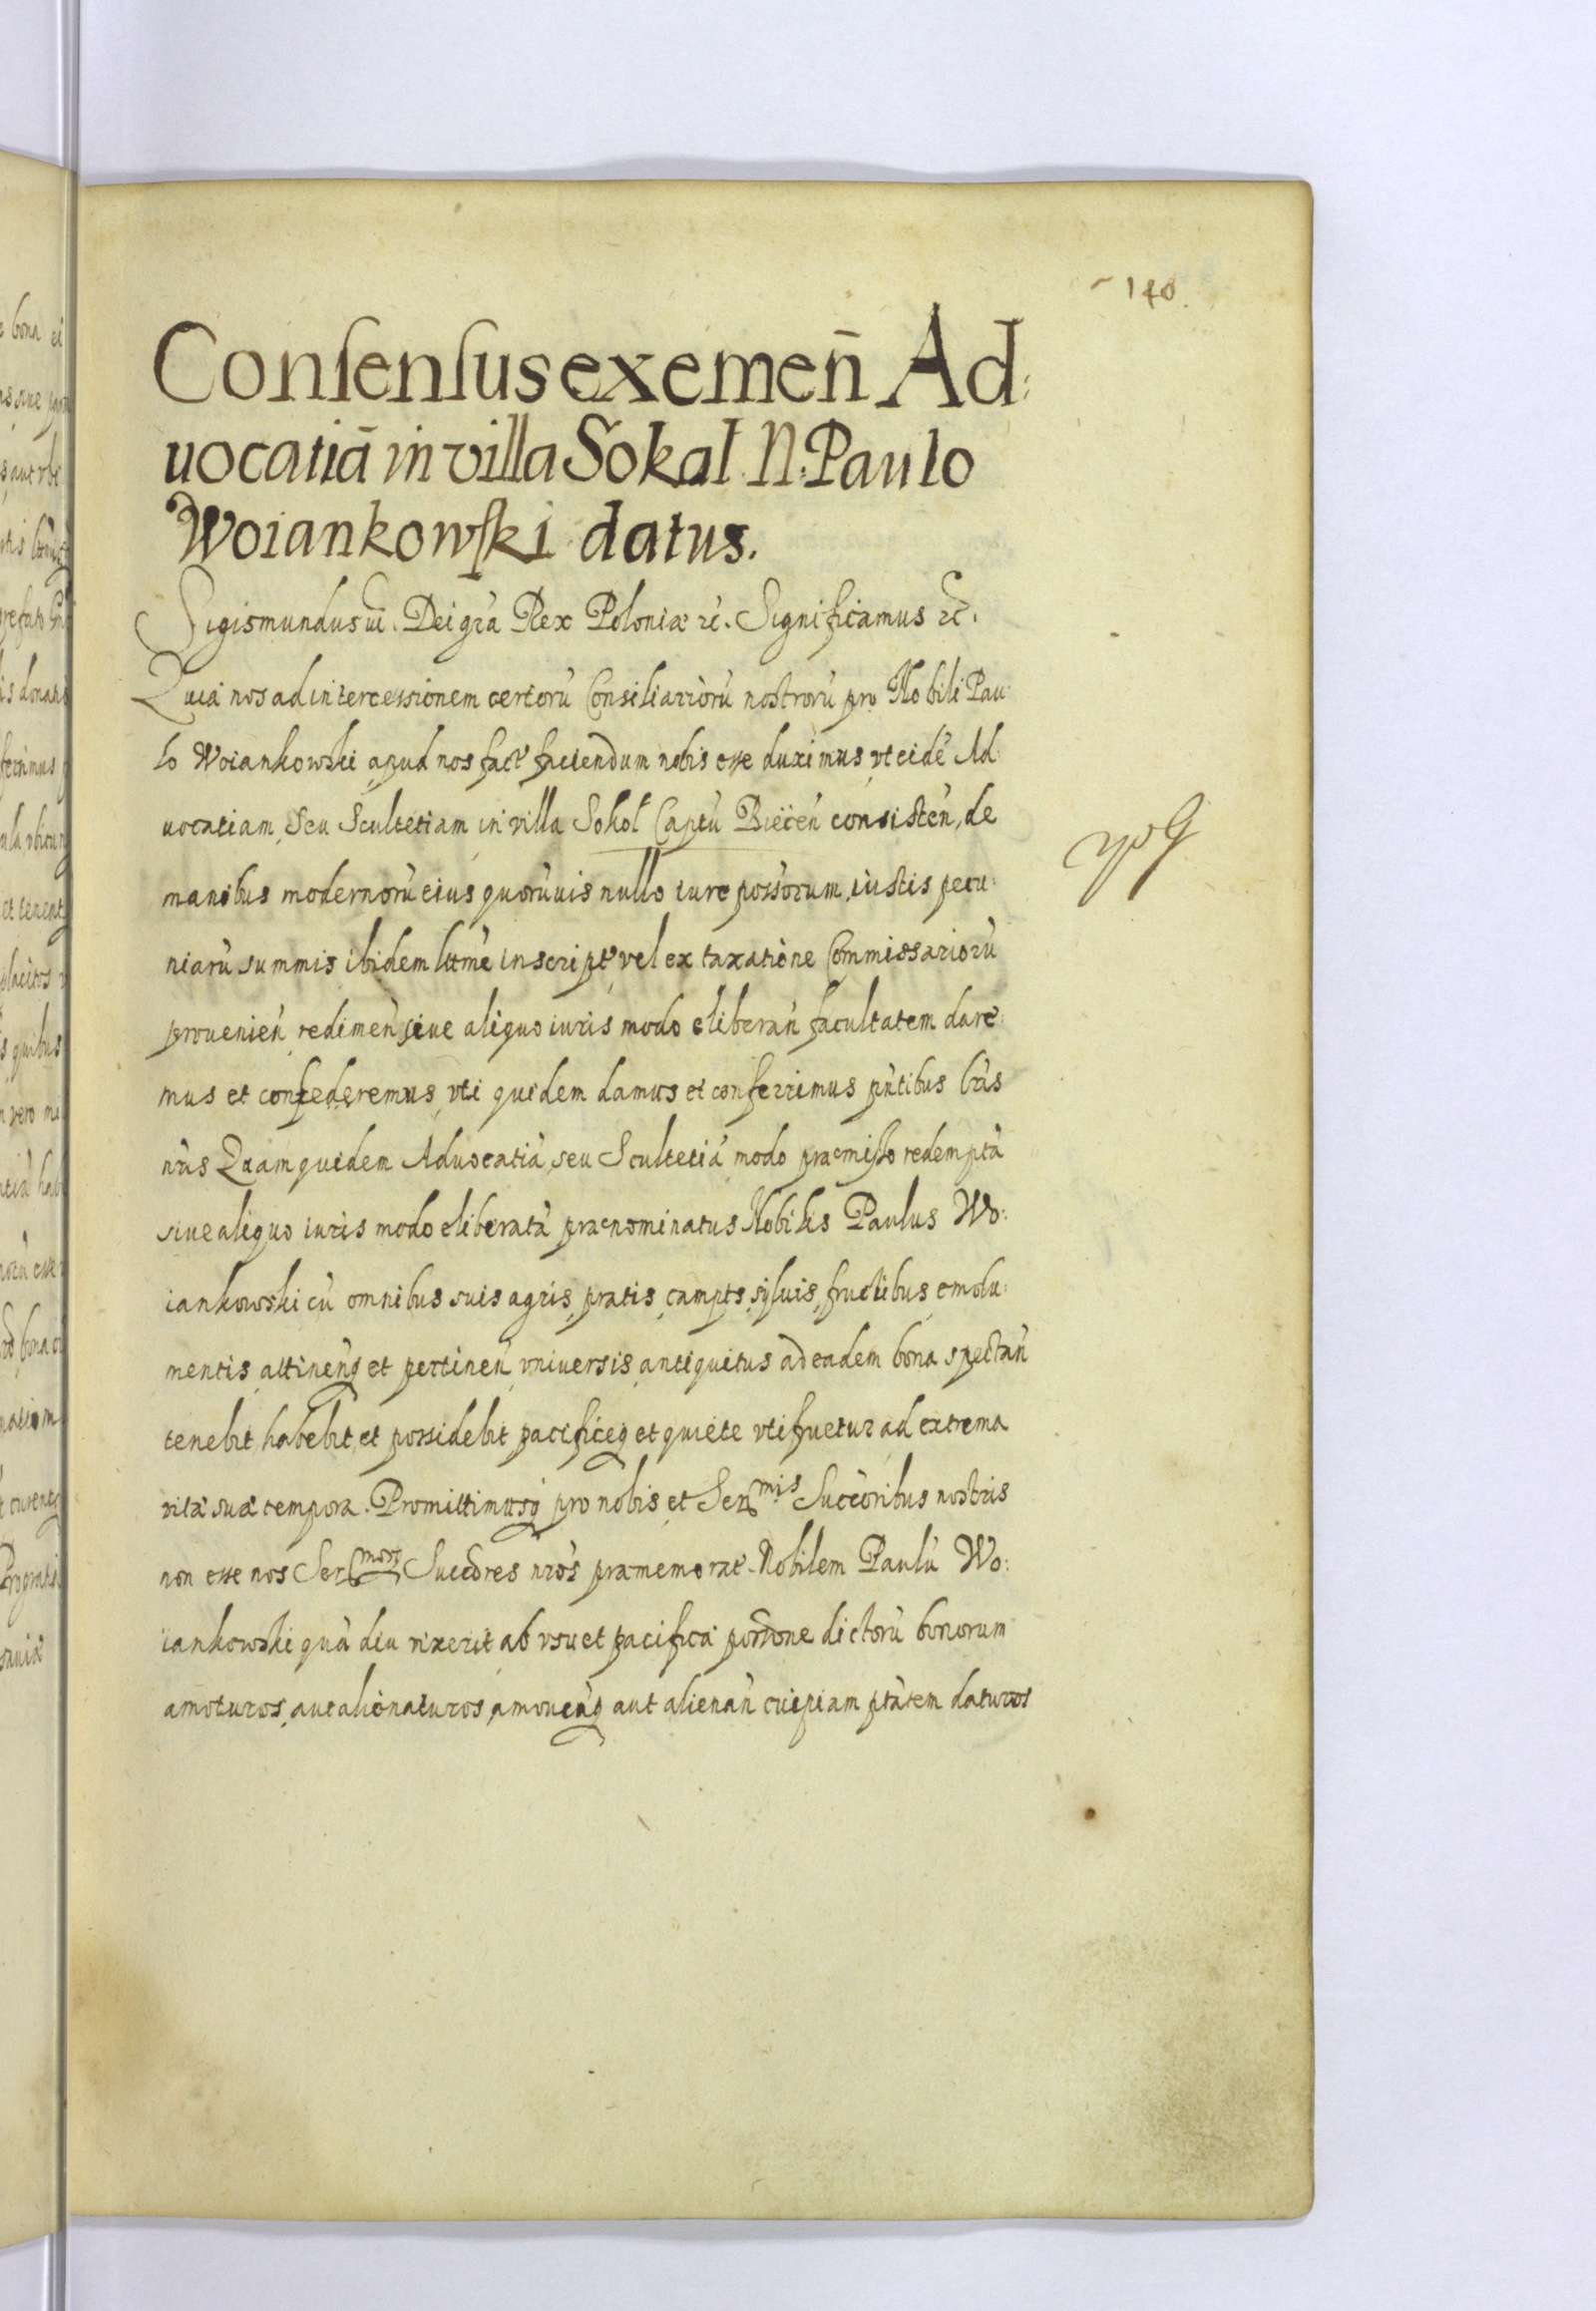 140.
Consensus exemeñ Ad:
uocatiā in villa Sokal N: Paulo
Woiankowski datus.
Sigismundus iii. Dei gra Rex Poloniæ rc. Significamus rc.
Quia nos ad intercessionem certorū Consiliariorū nostrorū pro Nobili Pau:
lo Woiankowski apud nos fact faciendum nobis esse duximus, vt eidē Ad
uocatiam, seu Scultetiam in villa Sokol Captū Biecen consisten, de
manibus modernorū eius quorūuis nullo iure possorum, iustis pecu:
niarū summis ibidem lttme inscript, vel ex taxatione Commissariorū
prouenień redimeń, siue aliquo iuris modo eliberań facultatem dare:
mus et conſederemus, vti quidem damus et conferrimus pntibus lris
nris Quam quidem Aduocatiā, seu Scultetiā modo præmisso redemptā
siue aliquo iuris modo eliberatā prænominatus Nobilis Paulus Wo:
iankowski cū omnibus suis agris, pratis, campis, syluis, fructibus emolu:
mentis, attineńq et pertineń vniuersis, antiquitus ad eadem bona spectań
tenebit, habebit, et possidebit pacificeq et quiete vti fruetur ad extrema
vitæ suæ tempora. Promittimusq pro nobis, et Ser mis Succoribus nostris
non esse nos Ser mosq Succores nros præmemorat Nobilem Paulū Wo:
iankowski quā diu vixerit ab vsu et pacificā possione dictorū bonorum
amoturos, aut alienaturos, amoueńq aut alienań cuipiam ptatem daturos